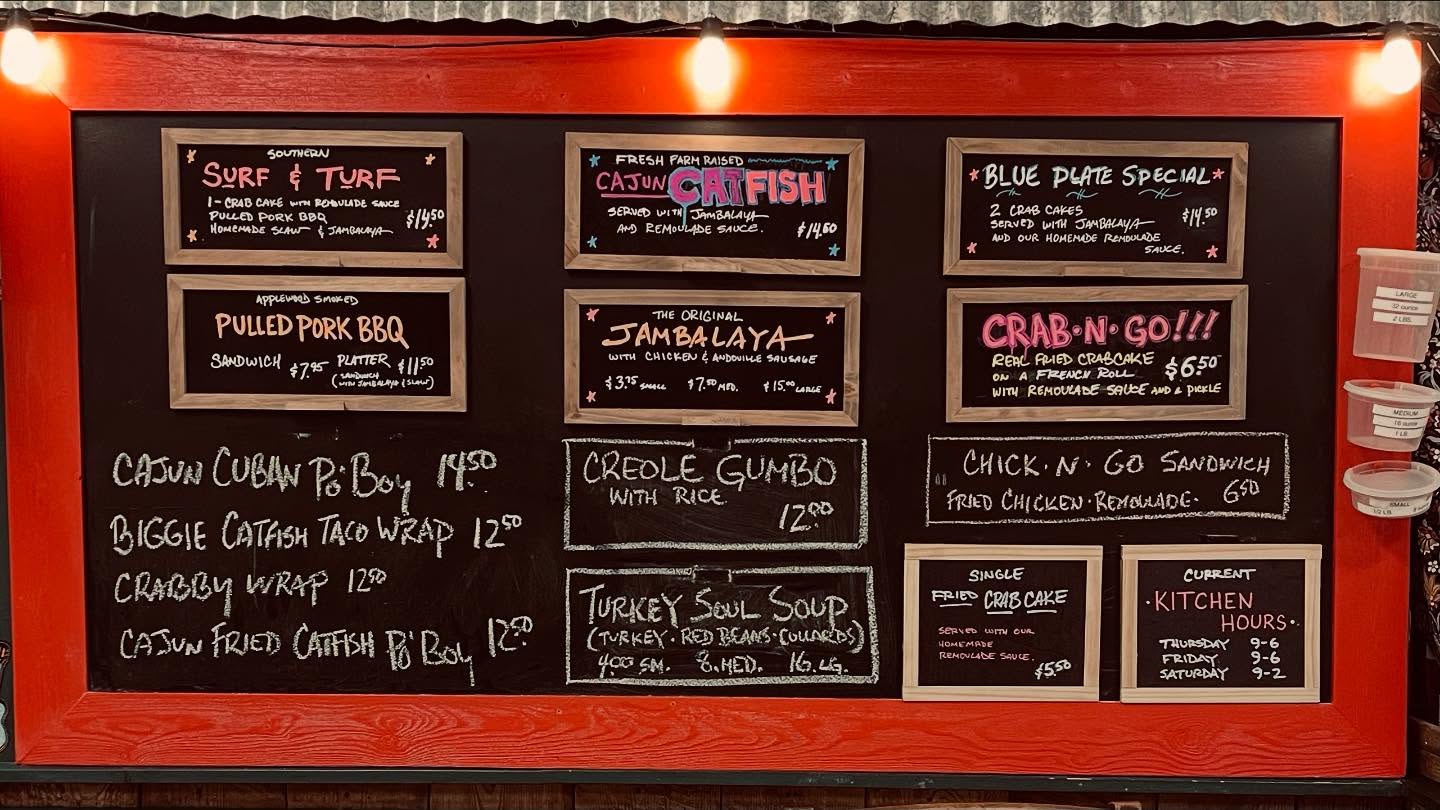 SOUTHERN
SURF & TURF
1 - CRAB CAKE WITH REMOULADE SAUCE
PULLED PORK BBQ
HOMEMADE SLAW & JAMBALAYA
$14.50
FRESH FARM RAISED
CAJUN CATFISH
SERVED WITH JAMBALAYA
AND REMOULADE SAUCE.
$14.50
BLUE PLATE SPECIAL
2 CRAB CAKES
SERVED WITH JAMBALAYA
AND OUR HOMEMADE REMOULADE
SAUCE.
$14.50
APPLEWOOD SMOKED
PULLED PORK BBQ
SANDWICH $7.95 PLATTER $11.50
(SANDWICH
WITH JAMBALAYA & SLAW)
THE ORIGINAL
JAMBALAYA
WITH CHICKEN & ANDOUILLE SAUSAGE
$3.75 SMALL $7.50 MED. $15.00 LARGE
CRAB·N·GO!!!
REAL FRIED CRABCAKE
ON A FRENCH ROLL
WITH REMOULADE SAUCE AND A PICKLE
$6.50
CAJUN CUBAN PO'BOY 14.50
BIGGIE CATFISH TACO WRAP 12.50
CRABBY WRAP 12.50
CAJUN FRIED CATFISH PO'BOY 12.50
CREOLE GUMBO
WITH RICE
12.00
TURKEY SOUL SOUP
(TURKEY·RED BEANS·COLLARDS)
4.00 SM. 8. MED. 16. LG.
CHICK·N·GO SANDWICH
FRIED CHICKEN·REMOULADE· 6.50
SINGLE
FRIED CRAB CAKE
SERVED WITH OUR
HOMEMADE
REMOULADE SAUCE.
$5.50
CURRENT
·KITCHEN
HOURS·
THURSDAY 9-6
FRIDAY 9-6
SATURDAY 9-2
LARGE
32 ounce
2 LBS.
MEDIUM
16 ounce
1 LB.
SMALL
1/2 LB.